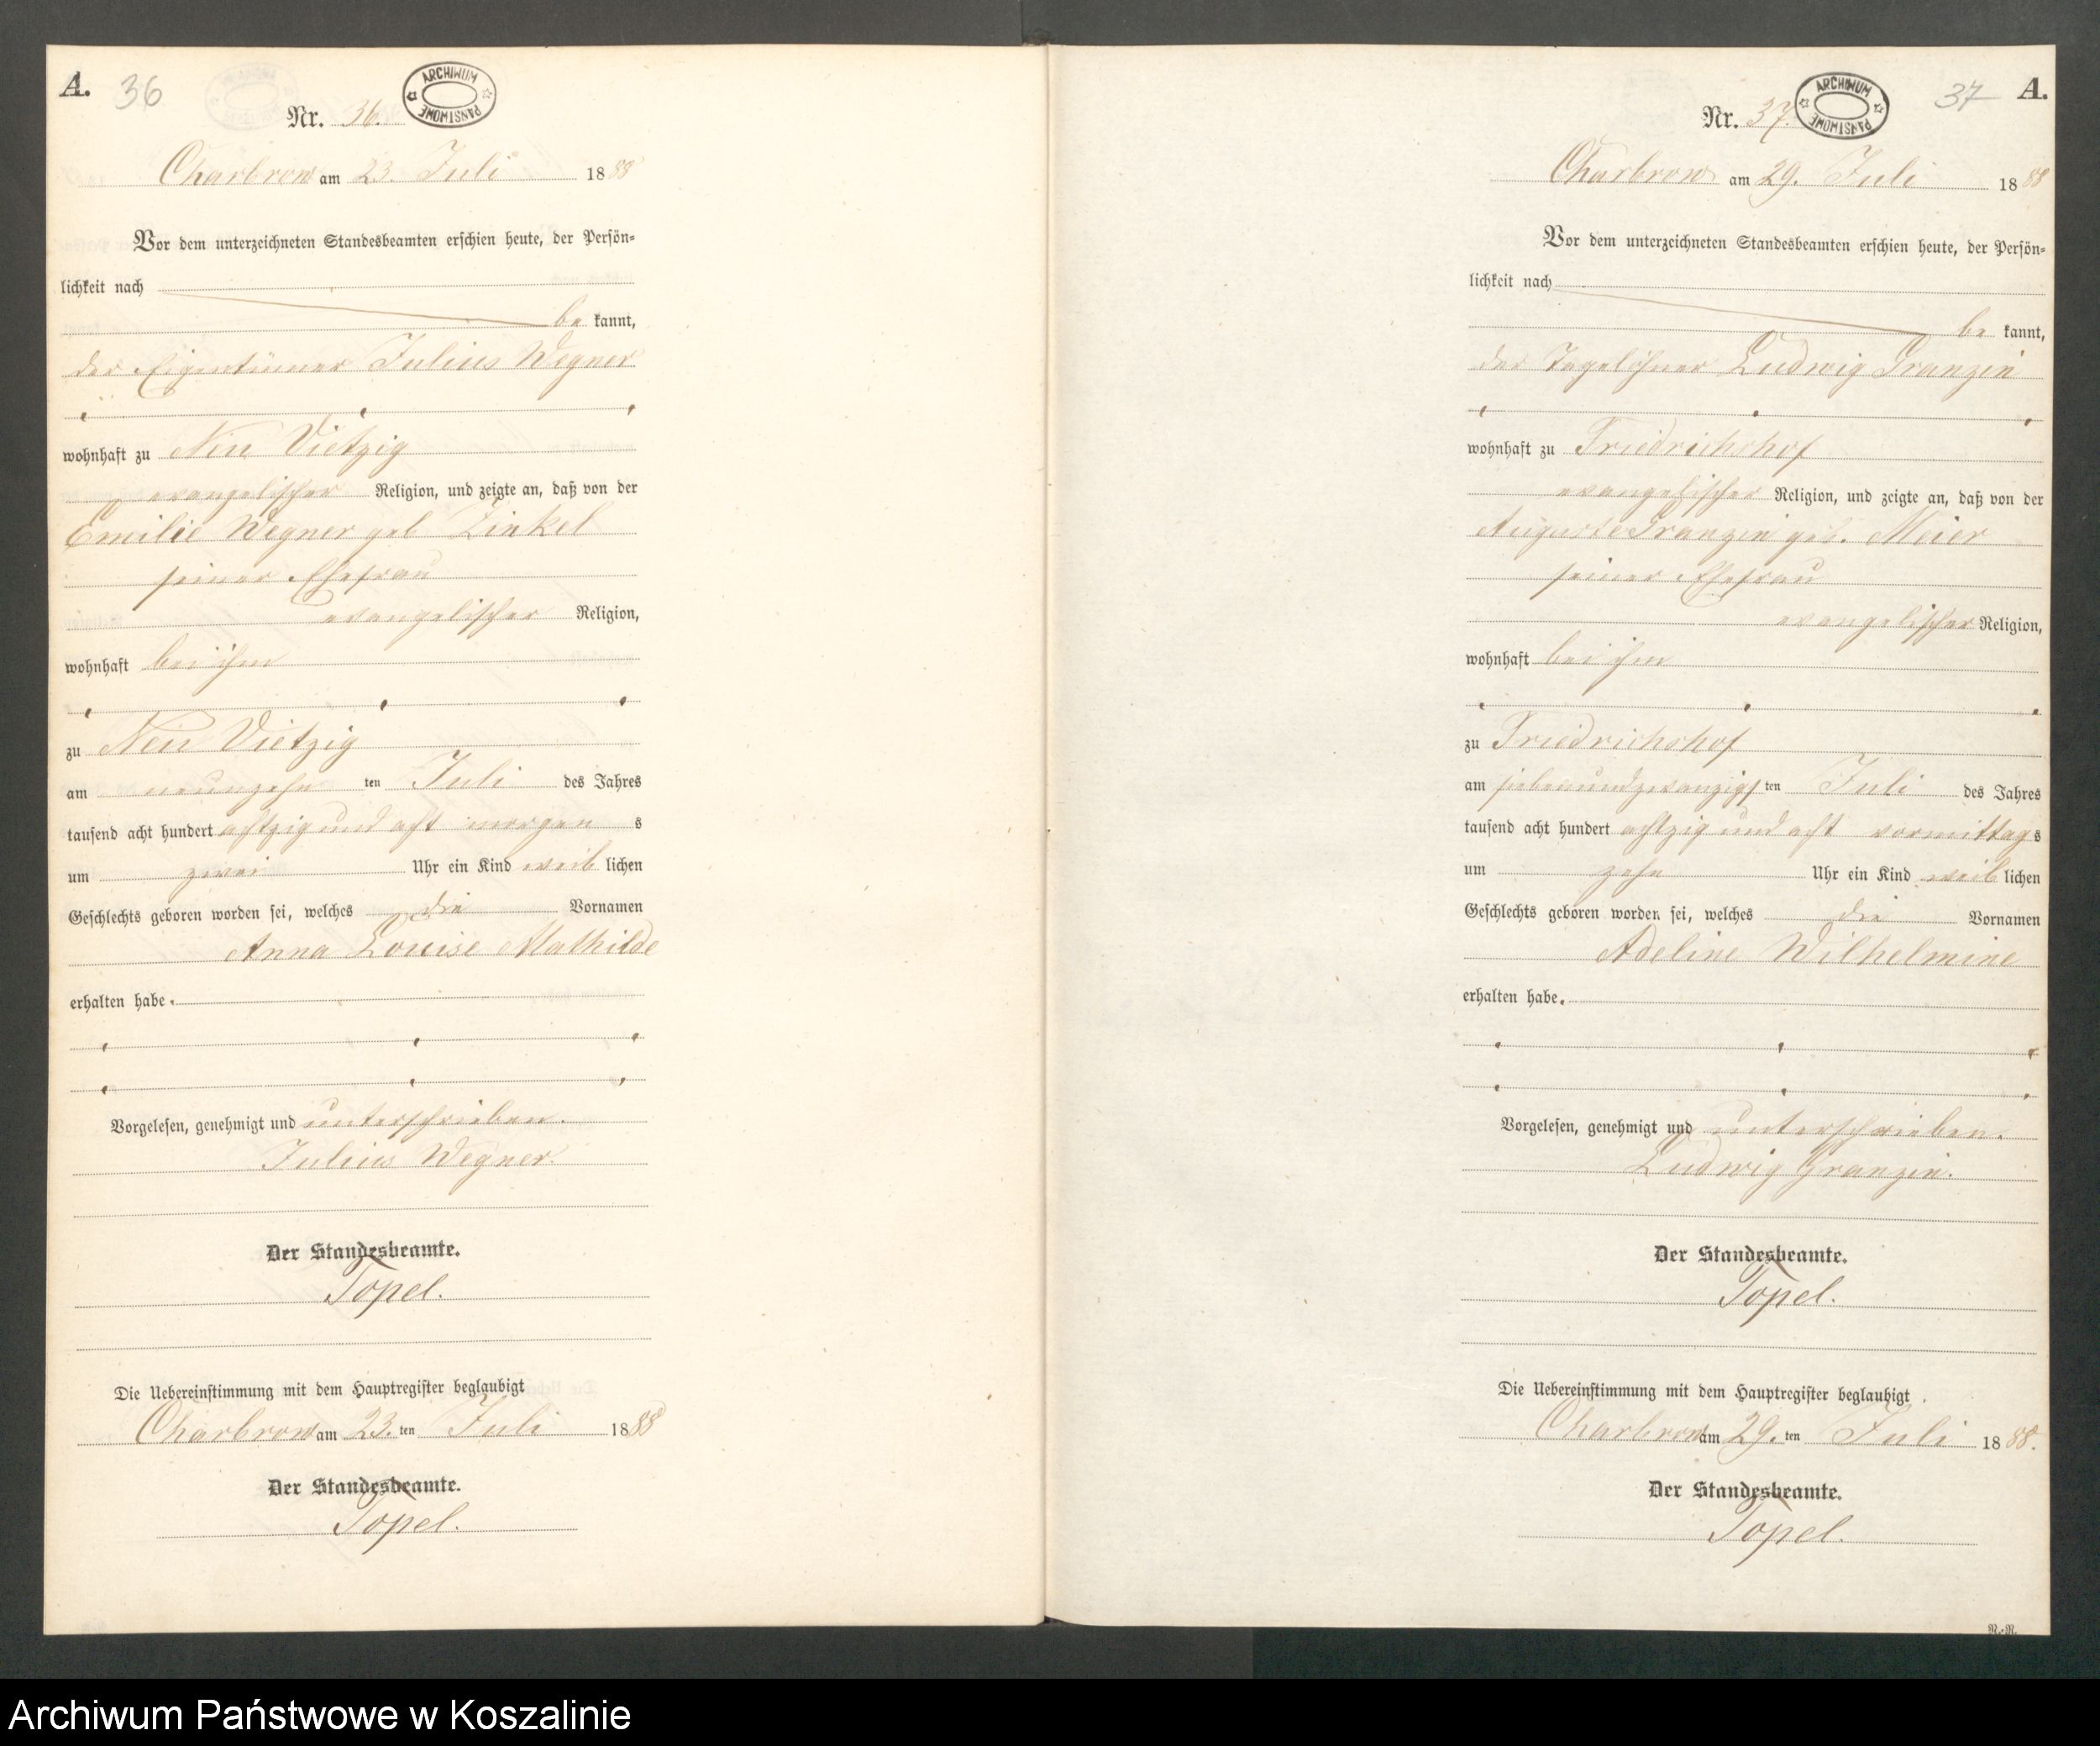 A. 36
ARCHIWUM PAŃSTWOWE
Nr. 36.
Charbrow am 23. Juli 1888
Vor dem unterzeichneten Standesbeamten erschien heute, der Persön-
lichkeit nach
be kannt,
der Eigentümer Julius Wegner
wohnhaft zu Neu Vietzig
evangelischer Religion, und zeigte an, daß von der
Emilie Wegner geb. Zinkel
seiner Ehefrau
evangelischer Religion,
wohnhaft bei ihm
zu Neu Vietzig
am neunzehn ten Juli des Jahres
tausend acht hundert achtzig und acht morgen s
um zwei Uhr ein Kind weib lichen
Geschlechts geboren worden sei, welches die Vornamen
Anna Louise Mathilde
erhalten habe.
Vorgelesen, genehmigt und unterschrieben.
Julius Wegner.
Der Standesbeamte.
Topel.
Die Uebereinstimmung mit dem Hauptregister beglaubigt
Charbrow am 23. ten Juli 1888
Der Standesbeamte.
Topel.
37 A.
ARCHIWUM PAŃSTWOWE
Nr. 37.
Charbrow am 29. Juli 1888
Vor dem unterzeichneten Standesbeamten erschien heute, der Persön-
lichkeit nach
be kannt,
der Tagelöhner Ludwig Granzin
wohnhaft zu Friedrichshof
evangelischer Religion, und zeigte an, daß von der
Auguste Granzin geb. Meier
seiner Ehefrau
evangelischer Religion,
wohnhaft bei ihm
zu Friedrichshof
am siebenundzwanzigs ten Juli des Jahres
tausend acht hundert achtzig und acht vormittag s
um zehn Uhr ein Kind weib lichen
Geschlechts geboren worden sei, welches die Vornamen
Adeline Wilhelmine
erhalten habe.
Vorgelesen, genehmigt und unterschrieben.
Ludwig Granzin.
Der Standesbeamte.
Topel.
Die Uebereinstimmung mit dem Hauptregister beglaubigt.
Charbrow am 29. ten Juli 1888.
Der Standesbeamte.
Topel.
R.-R.
Archiwum Państwowe w Koszalinie